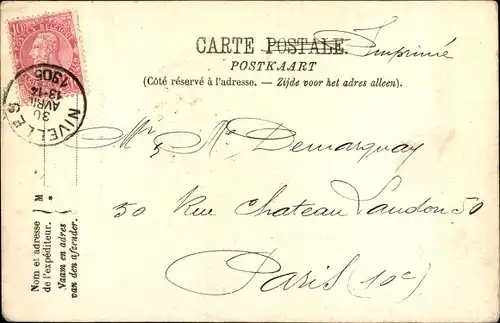 10
CARTE POSTALE. Imprimé
POSTKAART
(Côté réservé à l'adresse. — Zijde voor het adres alleen).
NIVELLES
30
AVRIL
13-14
1905
Mr & Me Demarquay
50 Rue Chateau Landon 50
Paris (10e)
M
Nom et adresse
de l'expéditeur.
Naam en adres
van den afzender.